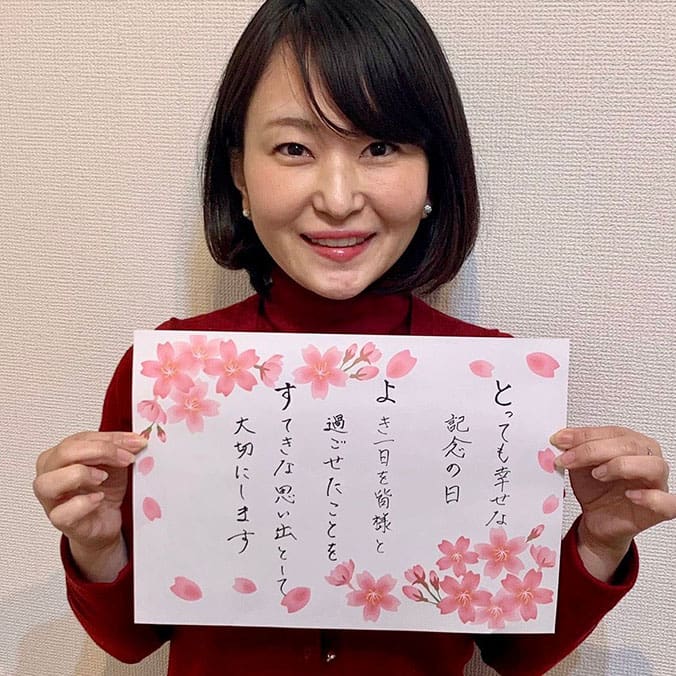 とっても幸せな
記念の日
よき一日を皆様と
過ごせたことを
すてきな思い出として
大切にします